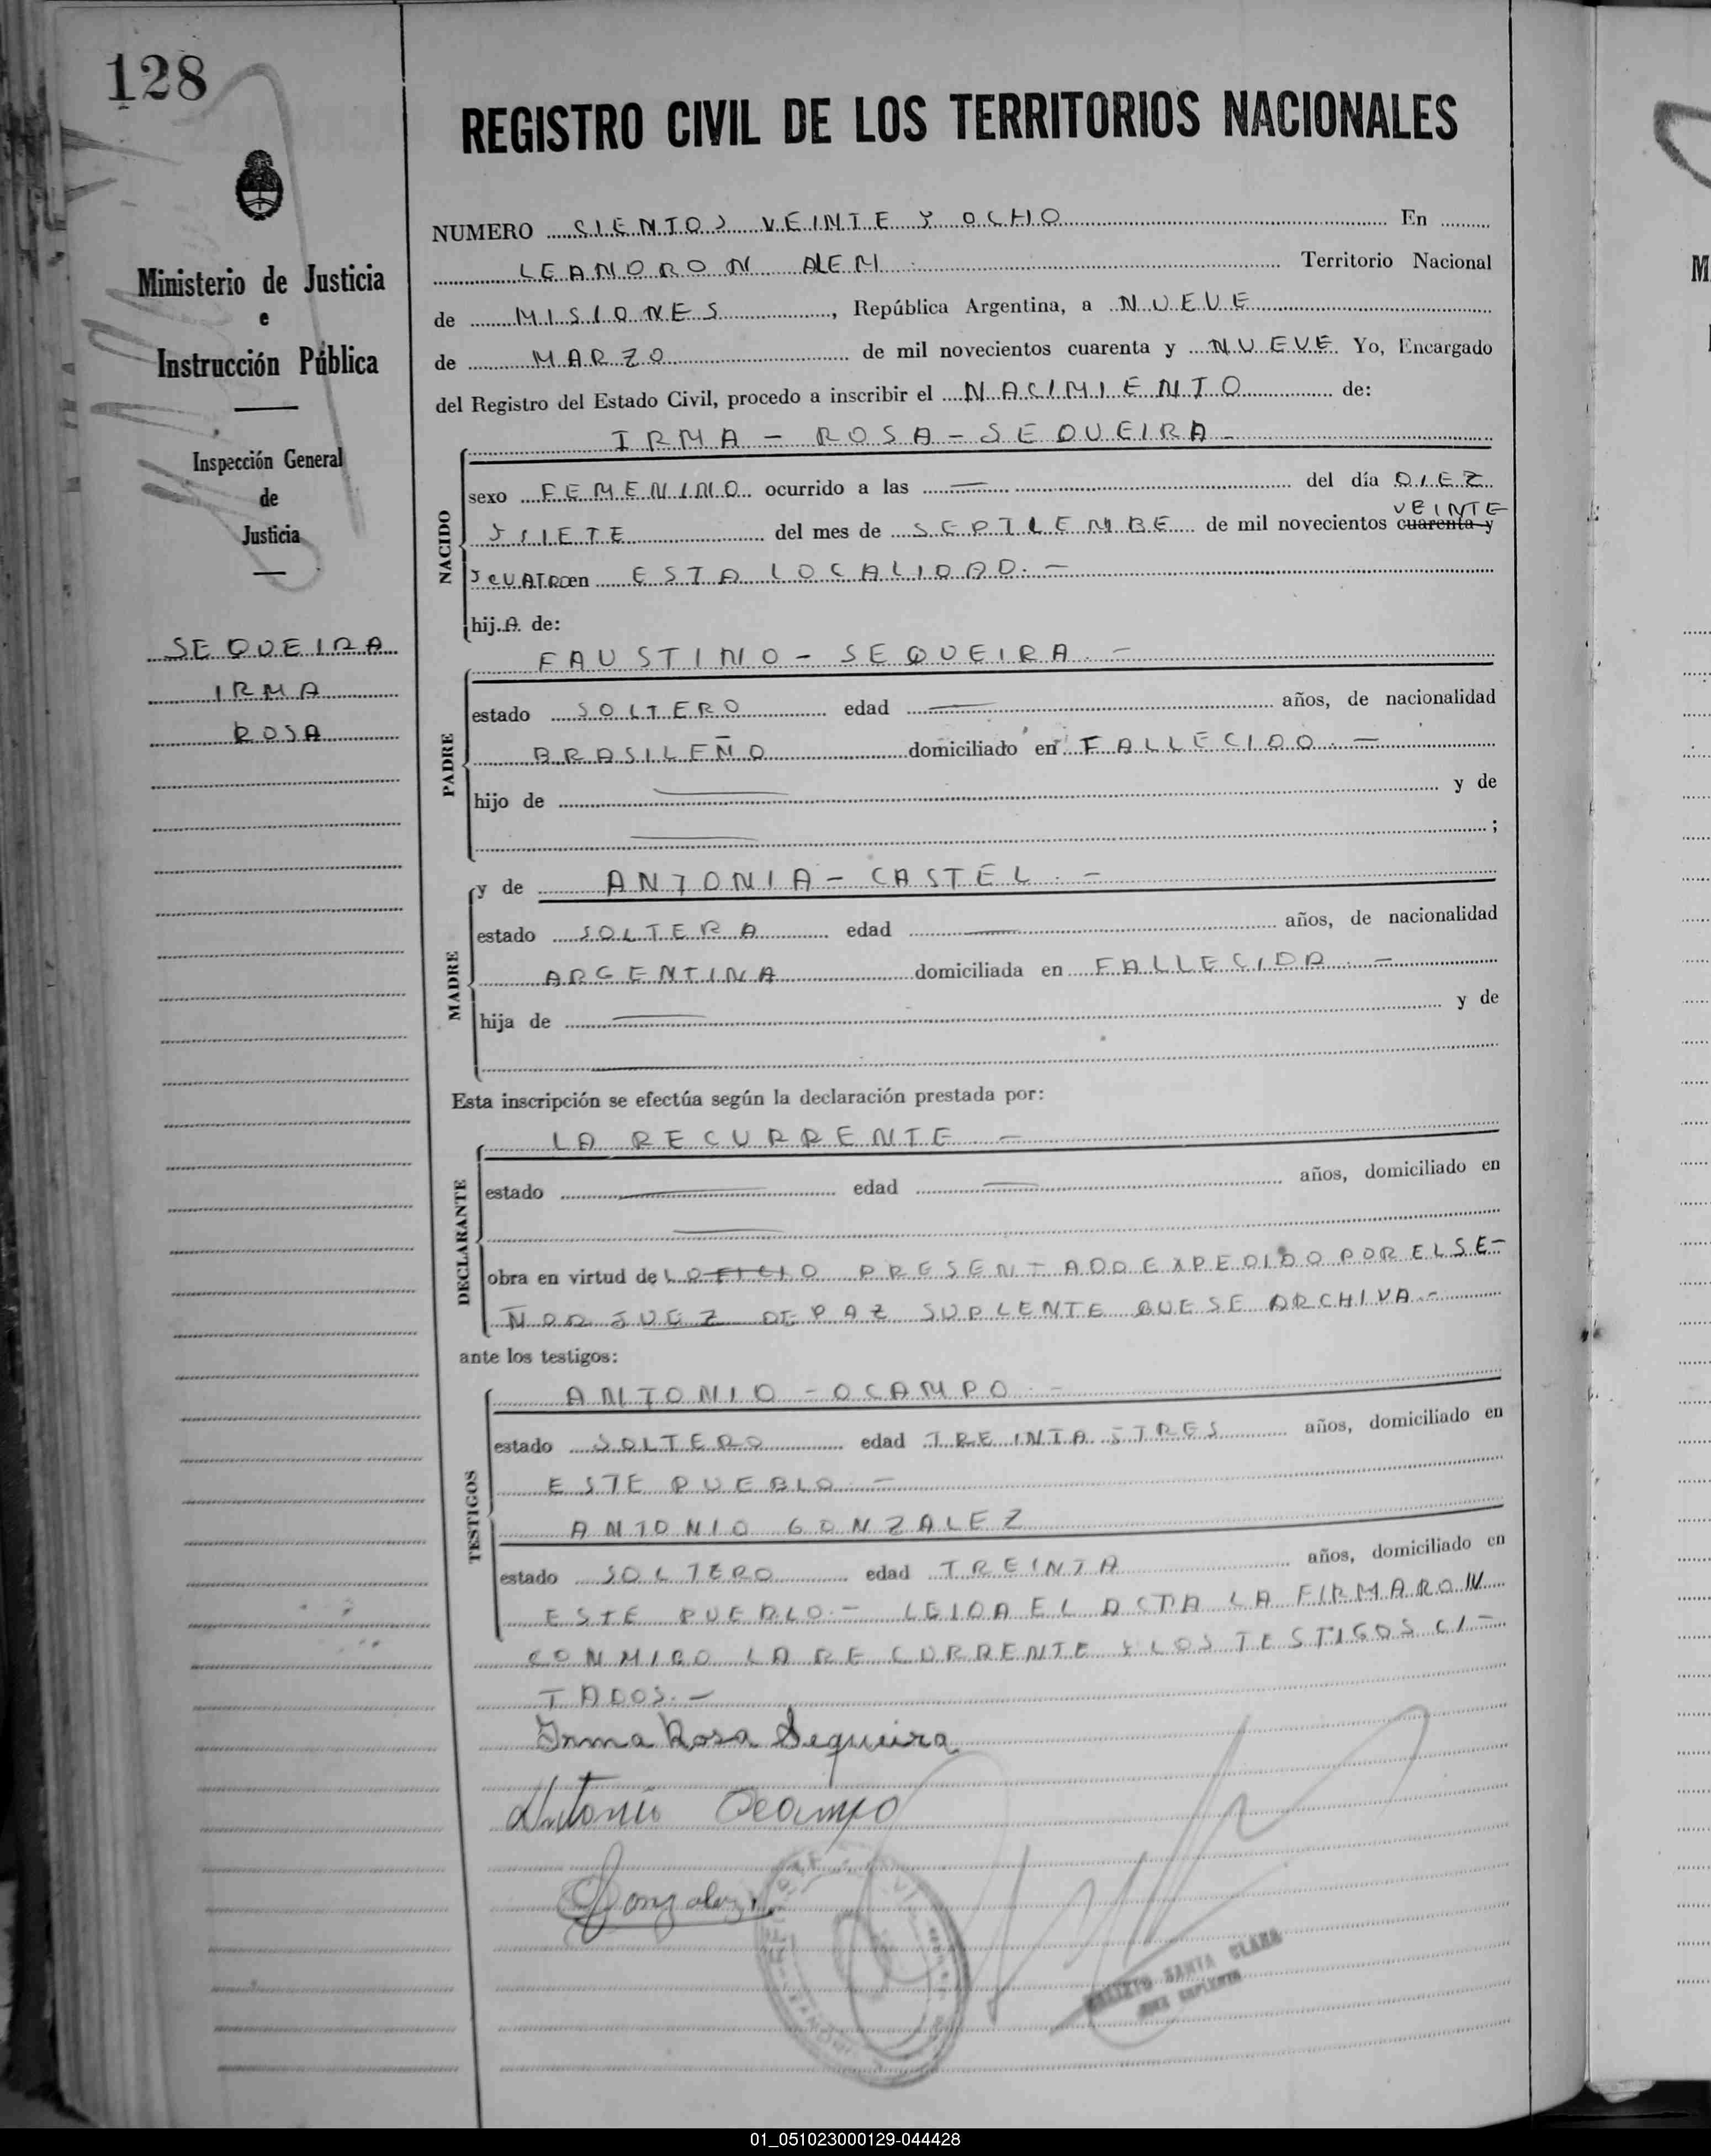 128
REGISTRO CIVIL DE LOS TERRITORIOS NACIONALES
Ministerio de Justicia
e
Instrucción Pública
Inspección General
de
Justicia
SEQUEIRA
IRMA
ROSA
NUMERO SIENTOS VEINTE Y OCHO En
LEANDRO N ALEM Territorio Nacional
de MISIONES, República Argentina, a NUEVE
de MARZO de mil novecientos cuarenta y NUEVE Yo, Encargado
del Registro del Estado Civil, procedo a inscribir el NACIMIENTO de:
IRMA - ROSA - SEQUEIRA -
NACIDO
sexo FEMENINO ocurrido a las — del día DIEZ
VEINTE
Y SIETE del mes de SEPTIEMBE de mil novecientos cuarenta y
Y CUATRO en ESTA LOCALIDAD. -
hij A de:
FAUSTINO - SEQUEIRA. -
PADRE
estado SOLTERO edad — años, de nacionalidad
BRASILEÑO domiciliado en FALLECIDO. -
hijo de — y de
— ;
MADRE
y de ANTONIA - CASTEL. -
estado SOLTERA edad — años, de nacionalidad
ARGENTINA domiciliada en FALLECIDA. -
hija de — y de
—
Esta inscripción se efectúa según la declaración prestada por:
LA RECURRENTE. -
DECLARANTE
estado — edad — años, domiciliado en
—
obra en virtud de L OFICIO PRESENTADO EXPEDIDO POR EL SE-
ÑOR JUEZ DE PAZ SUPLENTE QUE SE ARCHIVA. -
ante los testigos:
ANTONIO - OCAMPO. -
TESTIGOS
estado SOLTERO edad TREINTA Y TRES años, domiciliado en
ESTE PUEBLO. -
ANTONIO GONZALEZ
estado SOLTERO edad TREINTA años, domiciliado en
ESTE PUEBLO. - LEIDA EL ACTA LA FIRMARON
CONMIGO LA RECURRENTE Y LOS TESTIGOS CI-
TADOS. -
Irma Rosa Sequeira
Antonio Ocampo
Gonzalez
SANTA CLARA
JUEZ SUPLENTE
01_051023000129-044428